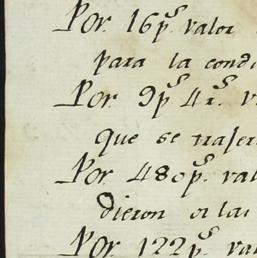 Por 16 p.s valor
para la condi
Por 9 p.s 4 r.s v
que se trajer
Por 480 p.s val
dieron a las
Por 122 p.s val